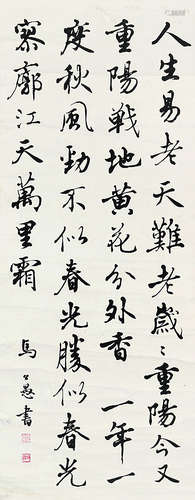 人生易老天難老歲〻重陽今又
重陽戰地黄花分外香一年一
度秋風勁不似春光勝似春光
寥廓江天萬里霜
馬公愚書